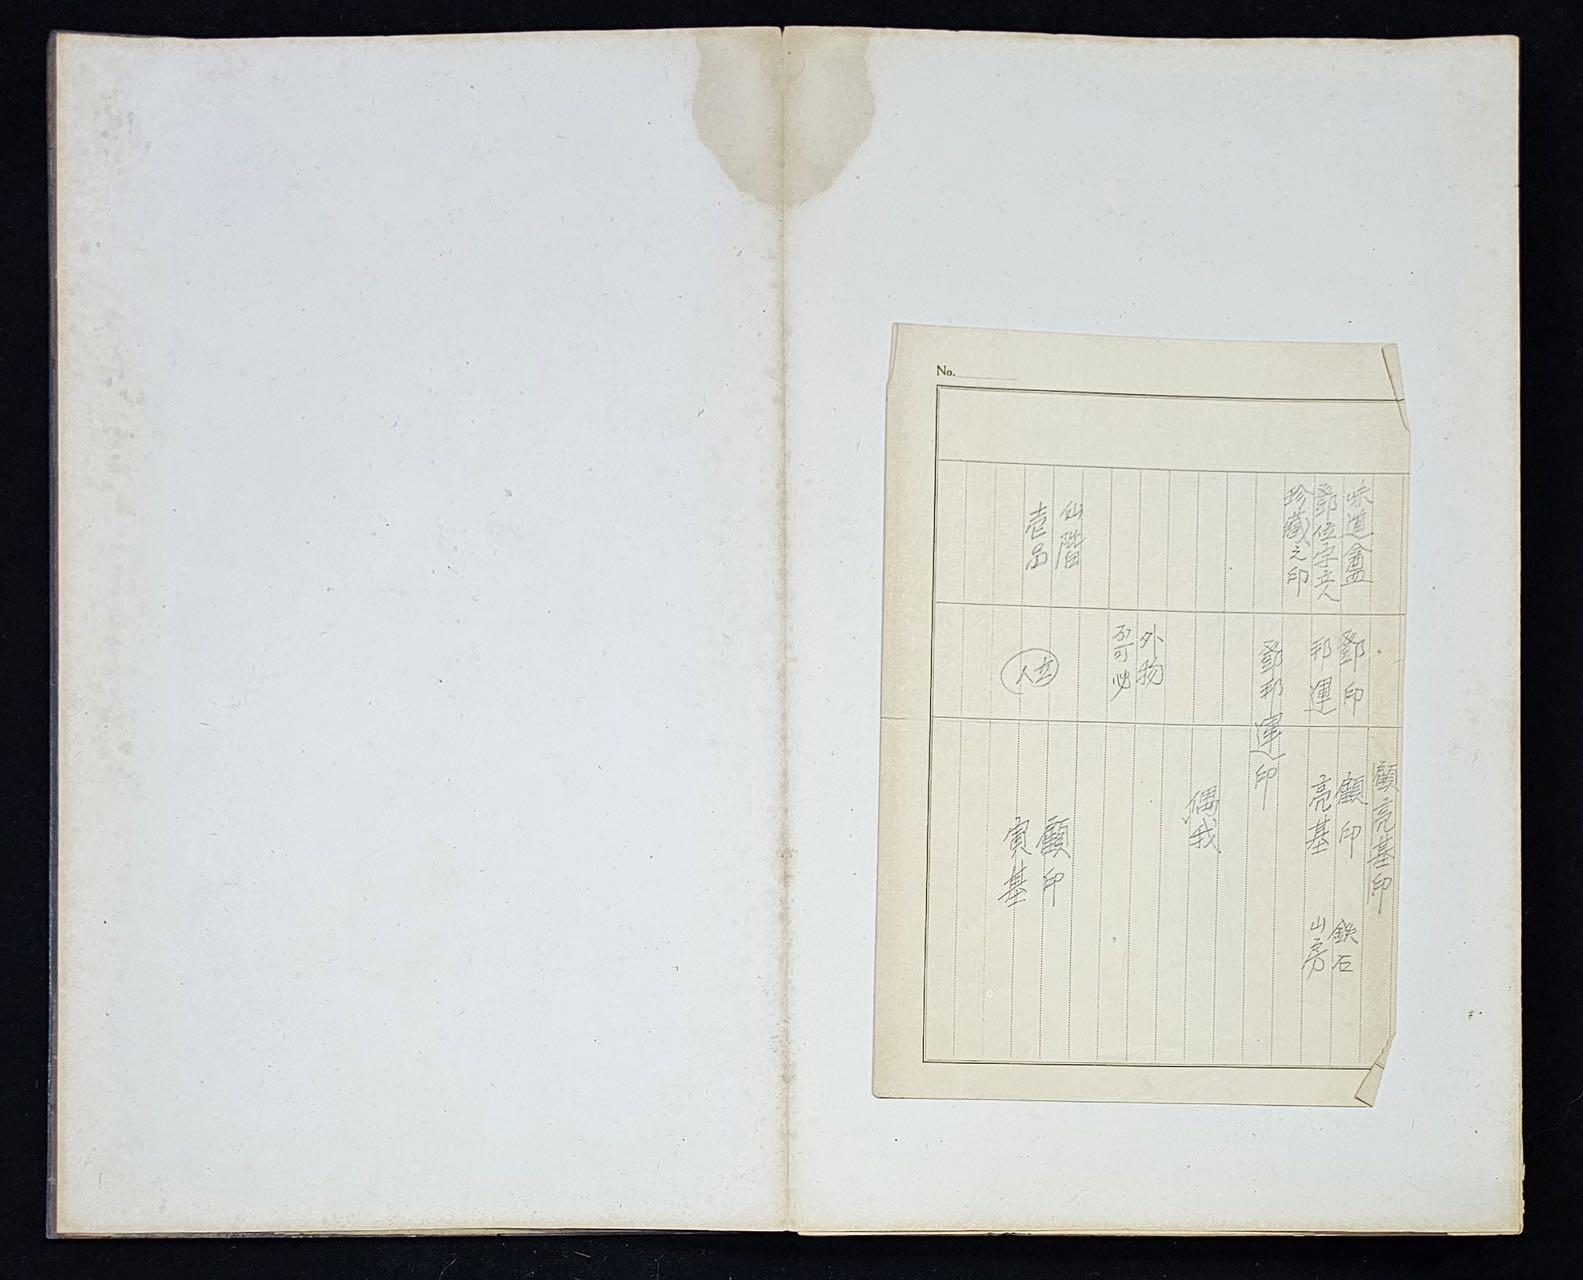 No.
味道盦
鄧位字立人
珍藏之印
鄧印
邦運
顧亮基印
顧印
亮基
鉄石
山房
鄧邦運印
偶我
外物
不可必
仙階
壱品
立人
顧印
寅基